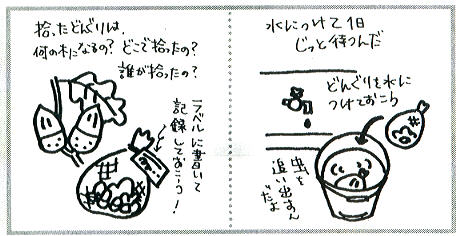 拾ったどんぐりは、
何の木になるの？どこで拾ったの？
誰が拾ったの？
ラベルに書いて
記録しておこう！
水につけて1日
じっと待つんだ
どんぐりを水に
つけておこう
虫を
追い出すん
だよ